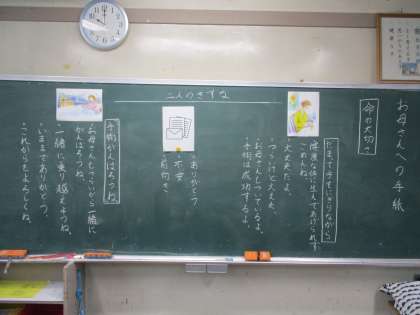 お母さんへの手紙
命の大切さ
だまって手をにぎりながら
健康な体に生んであげられず
ごめんね。
大丈夫だよ。
つづけて大丈夫。
お母さんもついているよ。
手術は成功するよ。
二人のきずな
・ありがとう
・不安
・前向き
手術がんばろうね。
がんばろうね。
お母さんもこれから一緒に
一緒に乗り越えようね。
・いままでありがとう。
・これからもよろしくね。